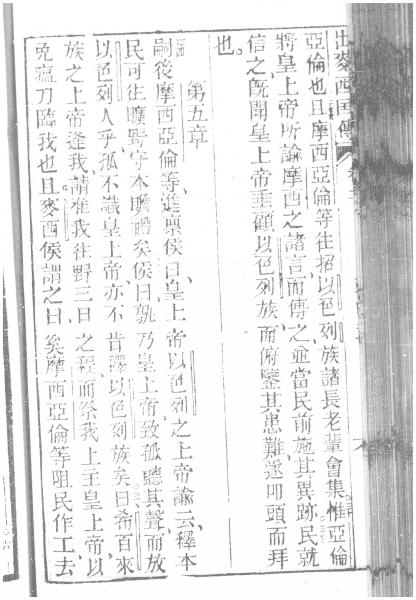 出麥西囯傳
亞倫也、且摩西亞倫等往招以色列族諸長老輩會集。惟亞倫
將皇上帝所諭摩西之諸言而傳之、並當民前施其異跡、民就
信之、旣聞皇上帝垂顧以色列族、而俯鑒其患難、遂叩頭而拜
也。
第五章
嗣後摩西亞倫等進稟侯曰、皇上帝以色列之上帝諭云、釋本
民可往曠野守本瞻禮矣、侯曰、孰乃皇上帝、致孤聽其聲、而放
以色列人乎、孤不識皇上帝、亦不肯釋以色列族矣、曰、希百來
族之上帝逢我、請准我往野三日之程、而祭我上主皇上帝、以
免瘟刀臨我也、且麥西侯謂之曰、矣摩西亞倫等阻民作工、去